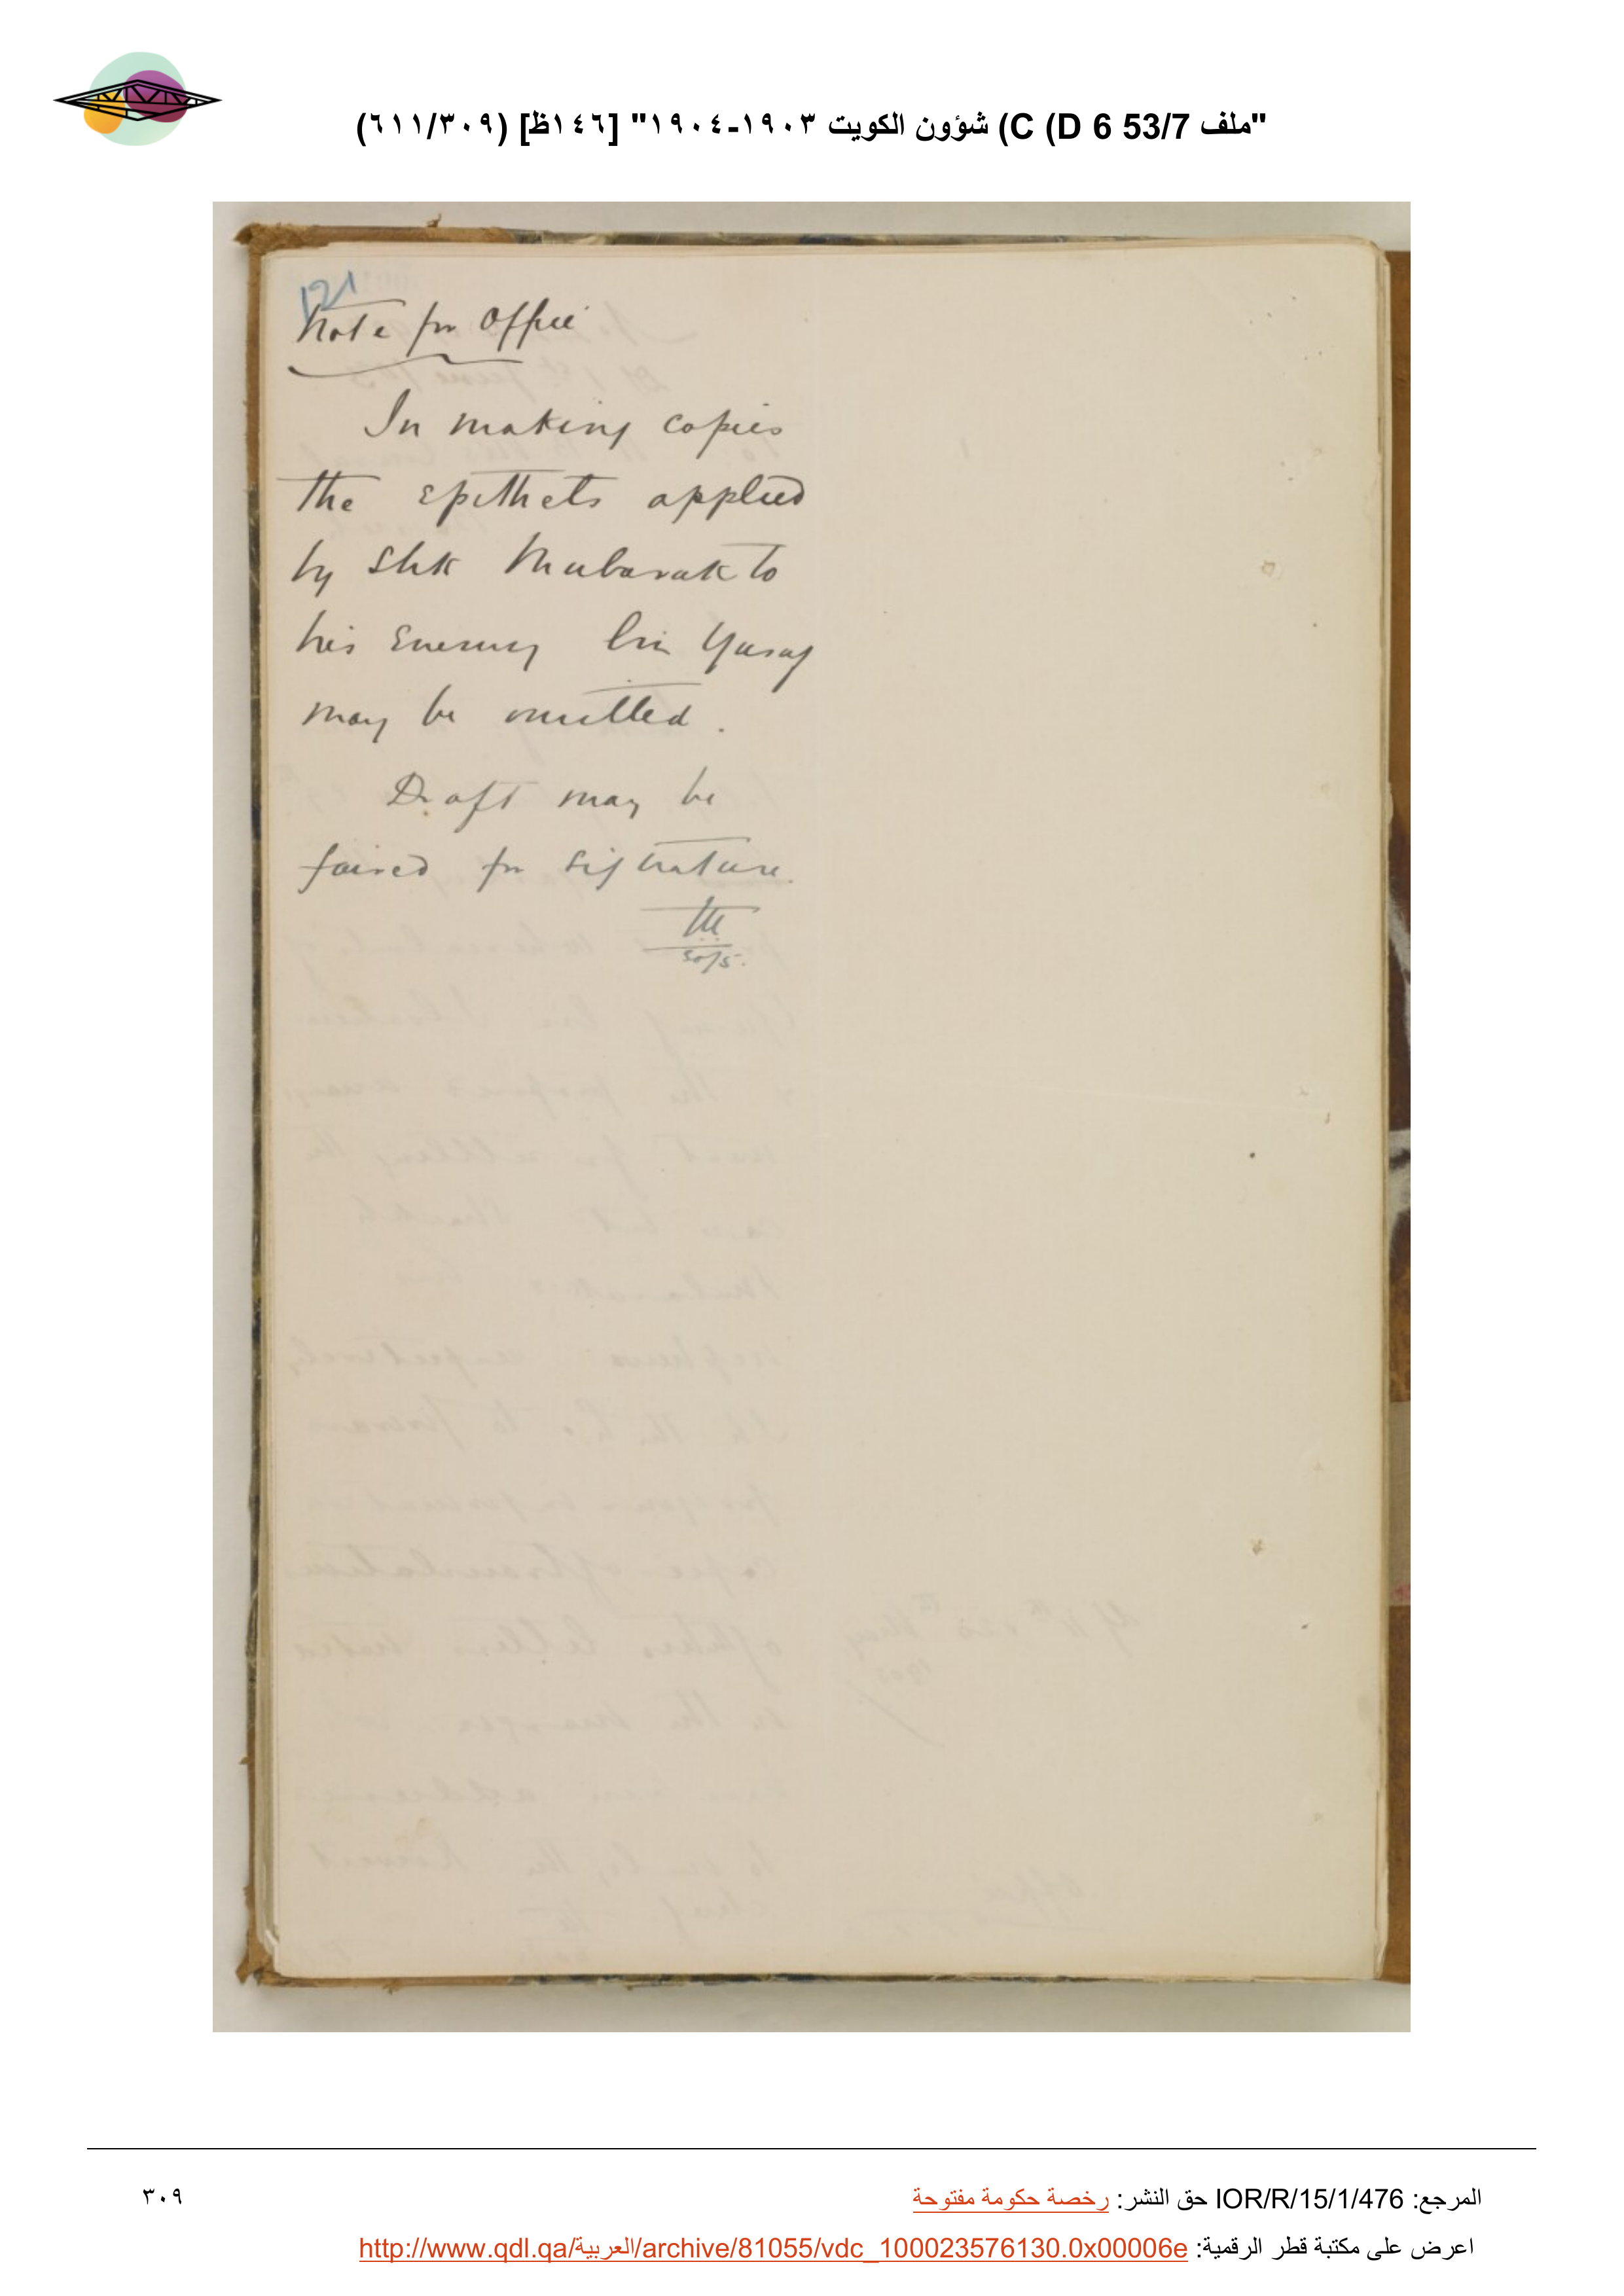 "ملف 53/7 C (D 6) شؤون الكويت ١٩٠٣-١٩٠٤" [١٤٦ظ] (٦١١/٣٠٩)
121
Note for Office
In making copies
the epithets applied
by Shk Mubarak to
his Enemy bin Yusuf
may be omitted.
Draft may be
faired for signature.
30/5.
المرجع: IOR/R/15/1/476 حق النشر: رخصة حكومة مفتوحة
٣٠٩
اعرض على مكتبة قطر الرقمية: http://www.qdl.qa/العربية/archive/81055/vdc_100023576130.0x00006e